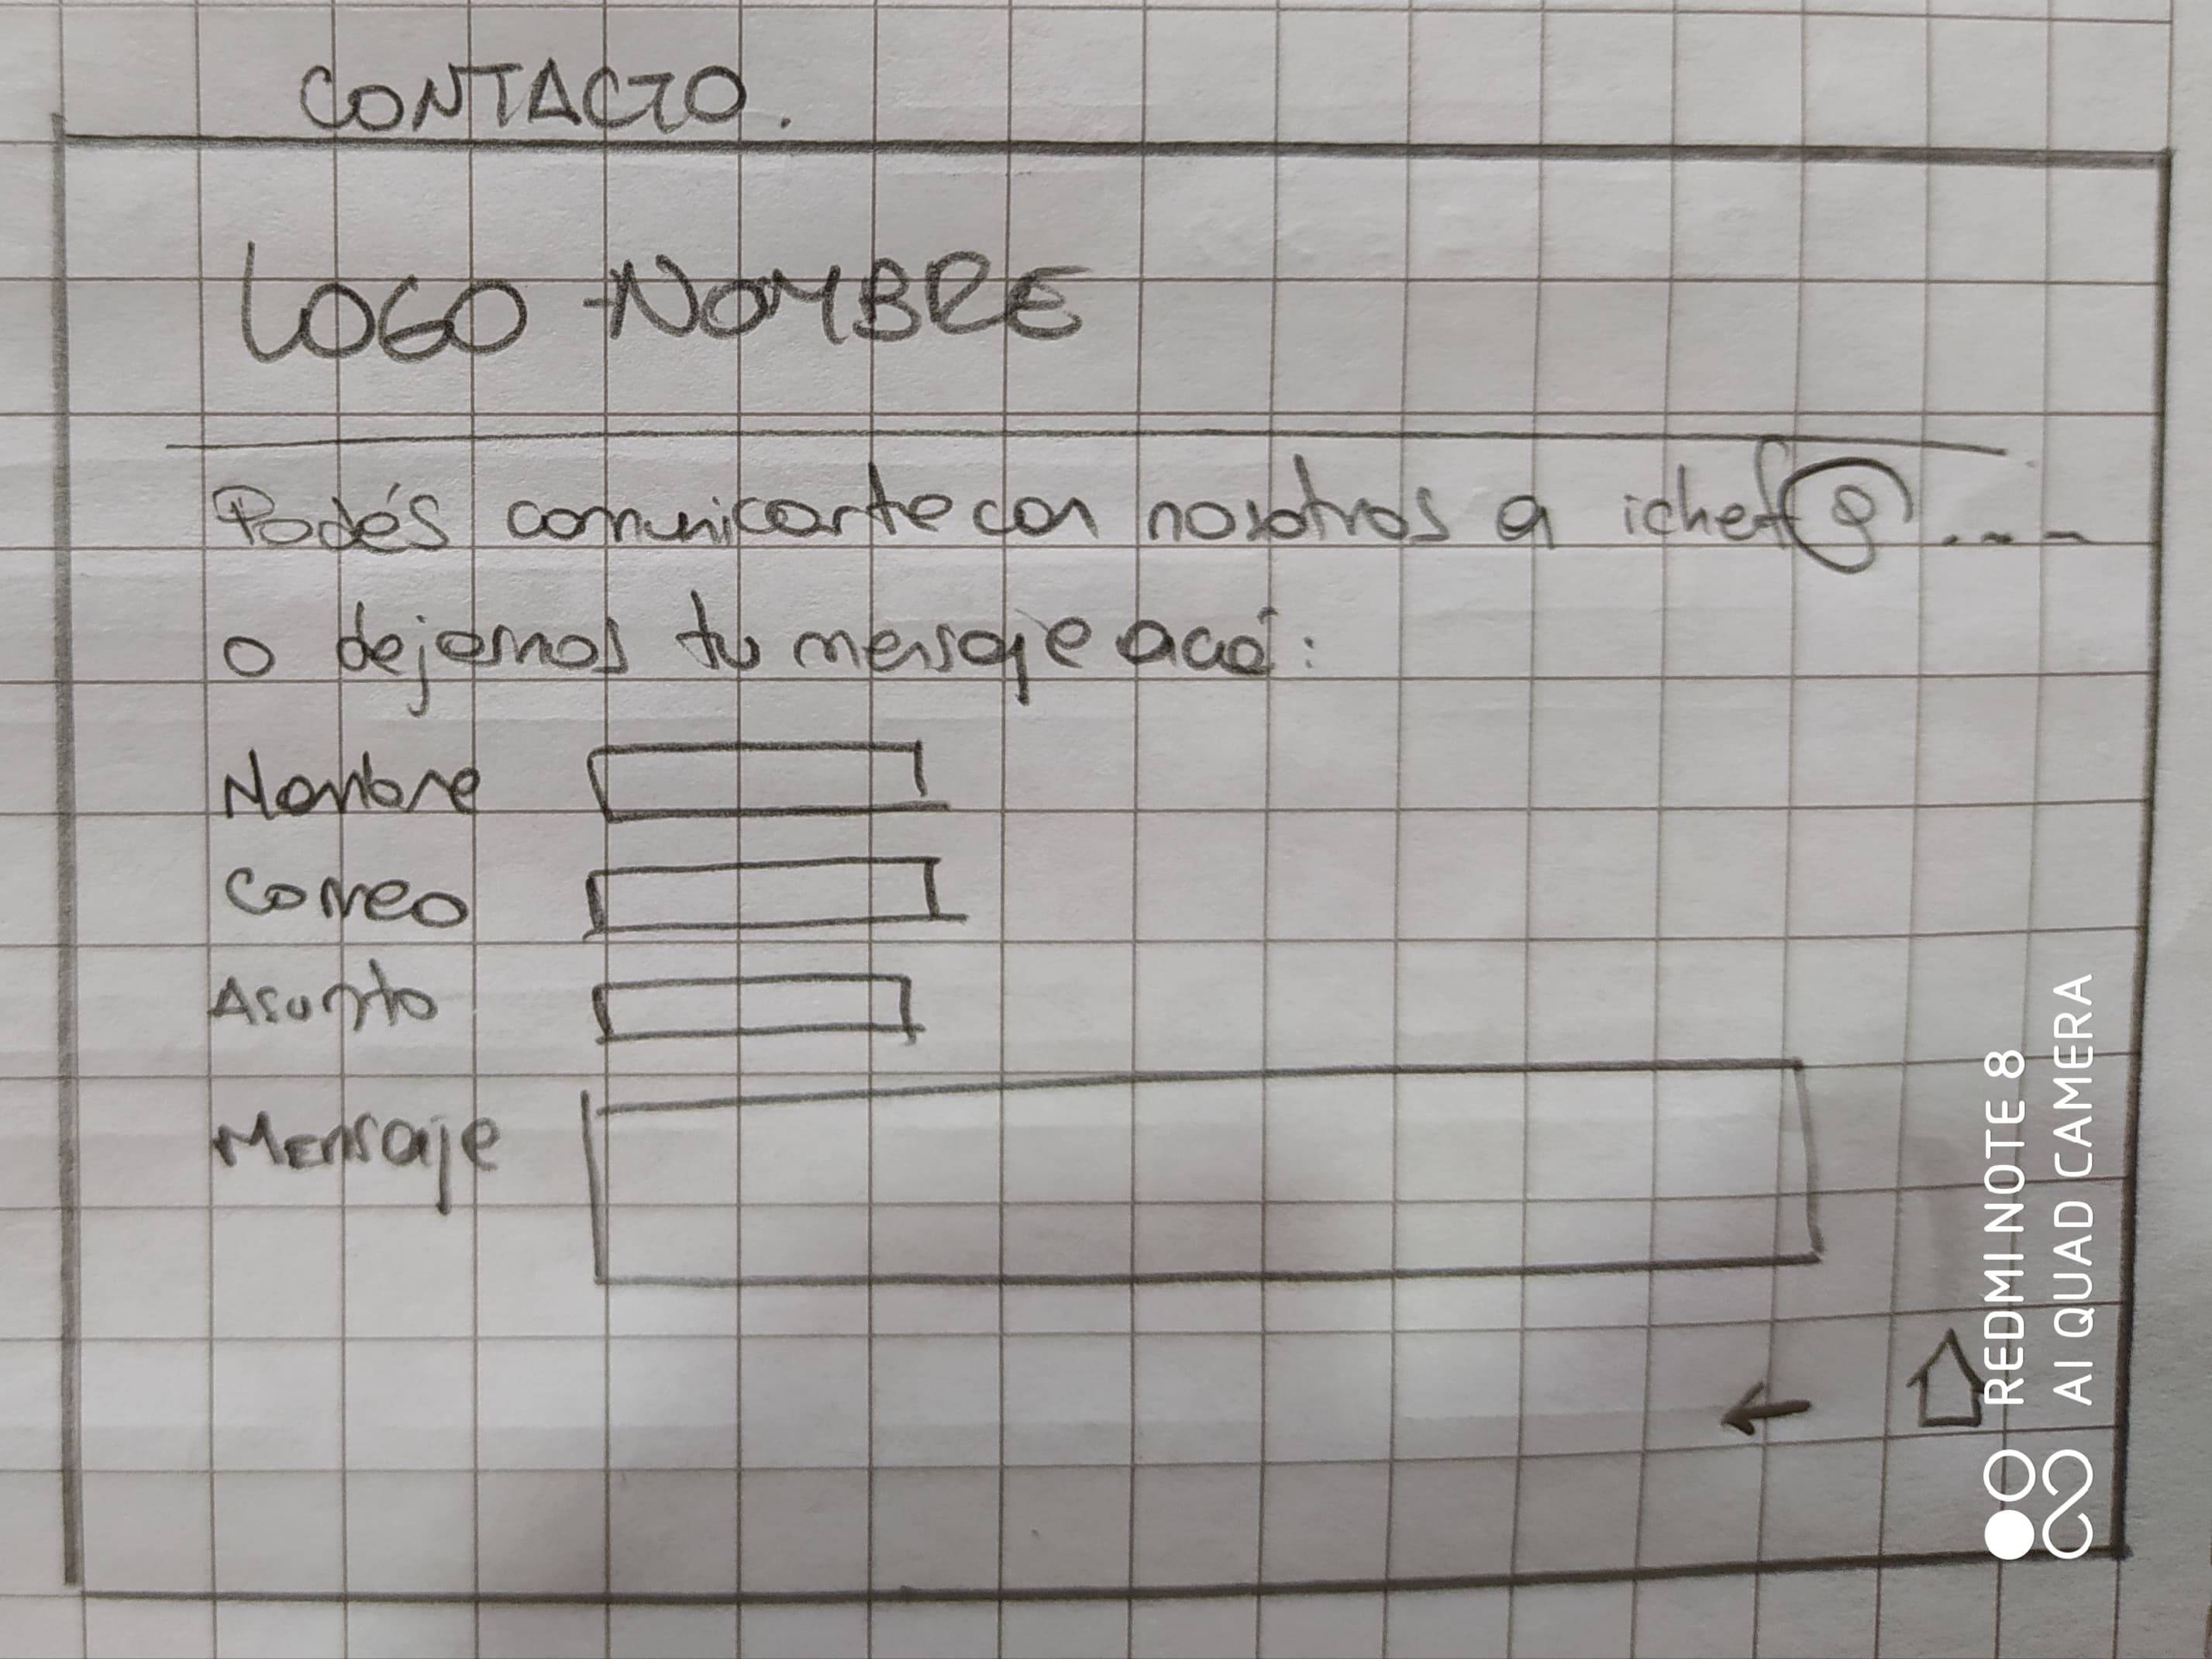 CONTACTO.
LOGO - NOMBRE
Podés comunicarte con nosotros a ichef@...-
o dejarnos tu mensaje acá:
Nombre
Correo
Asunto
Mensaje
REDMI NOTE 8
AI QUAD CAMERA